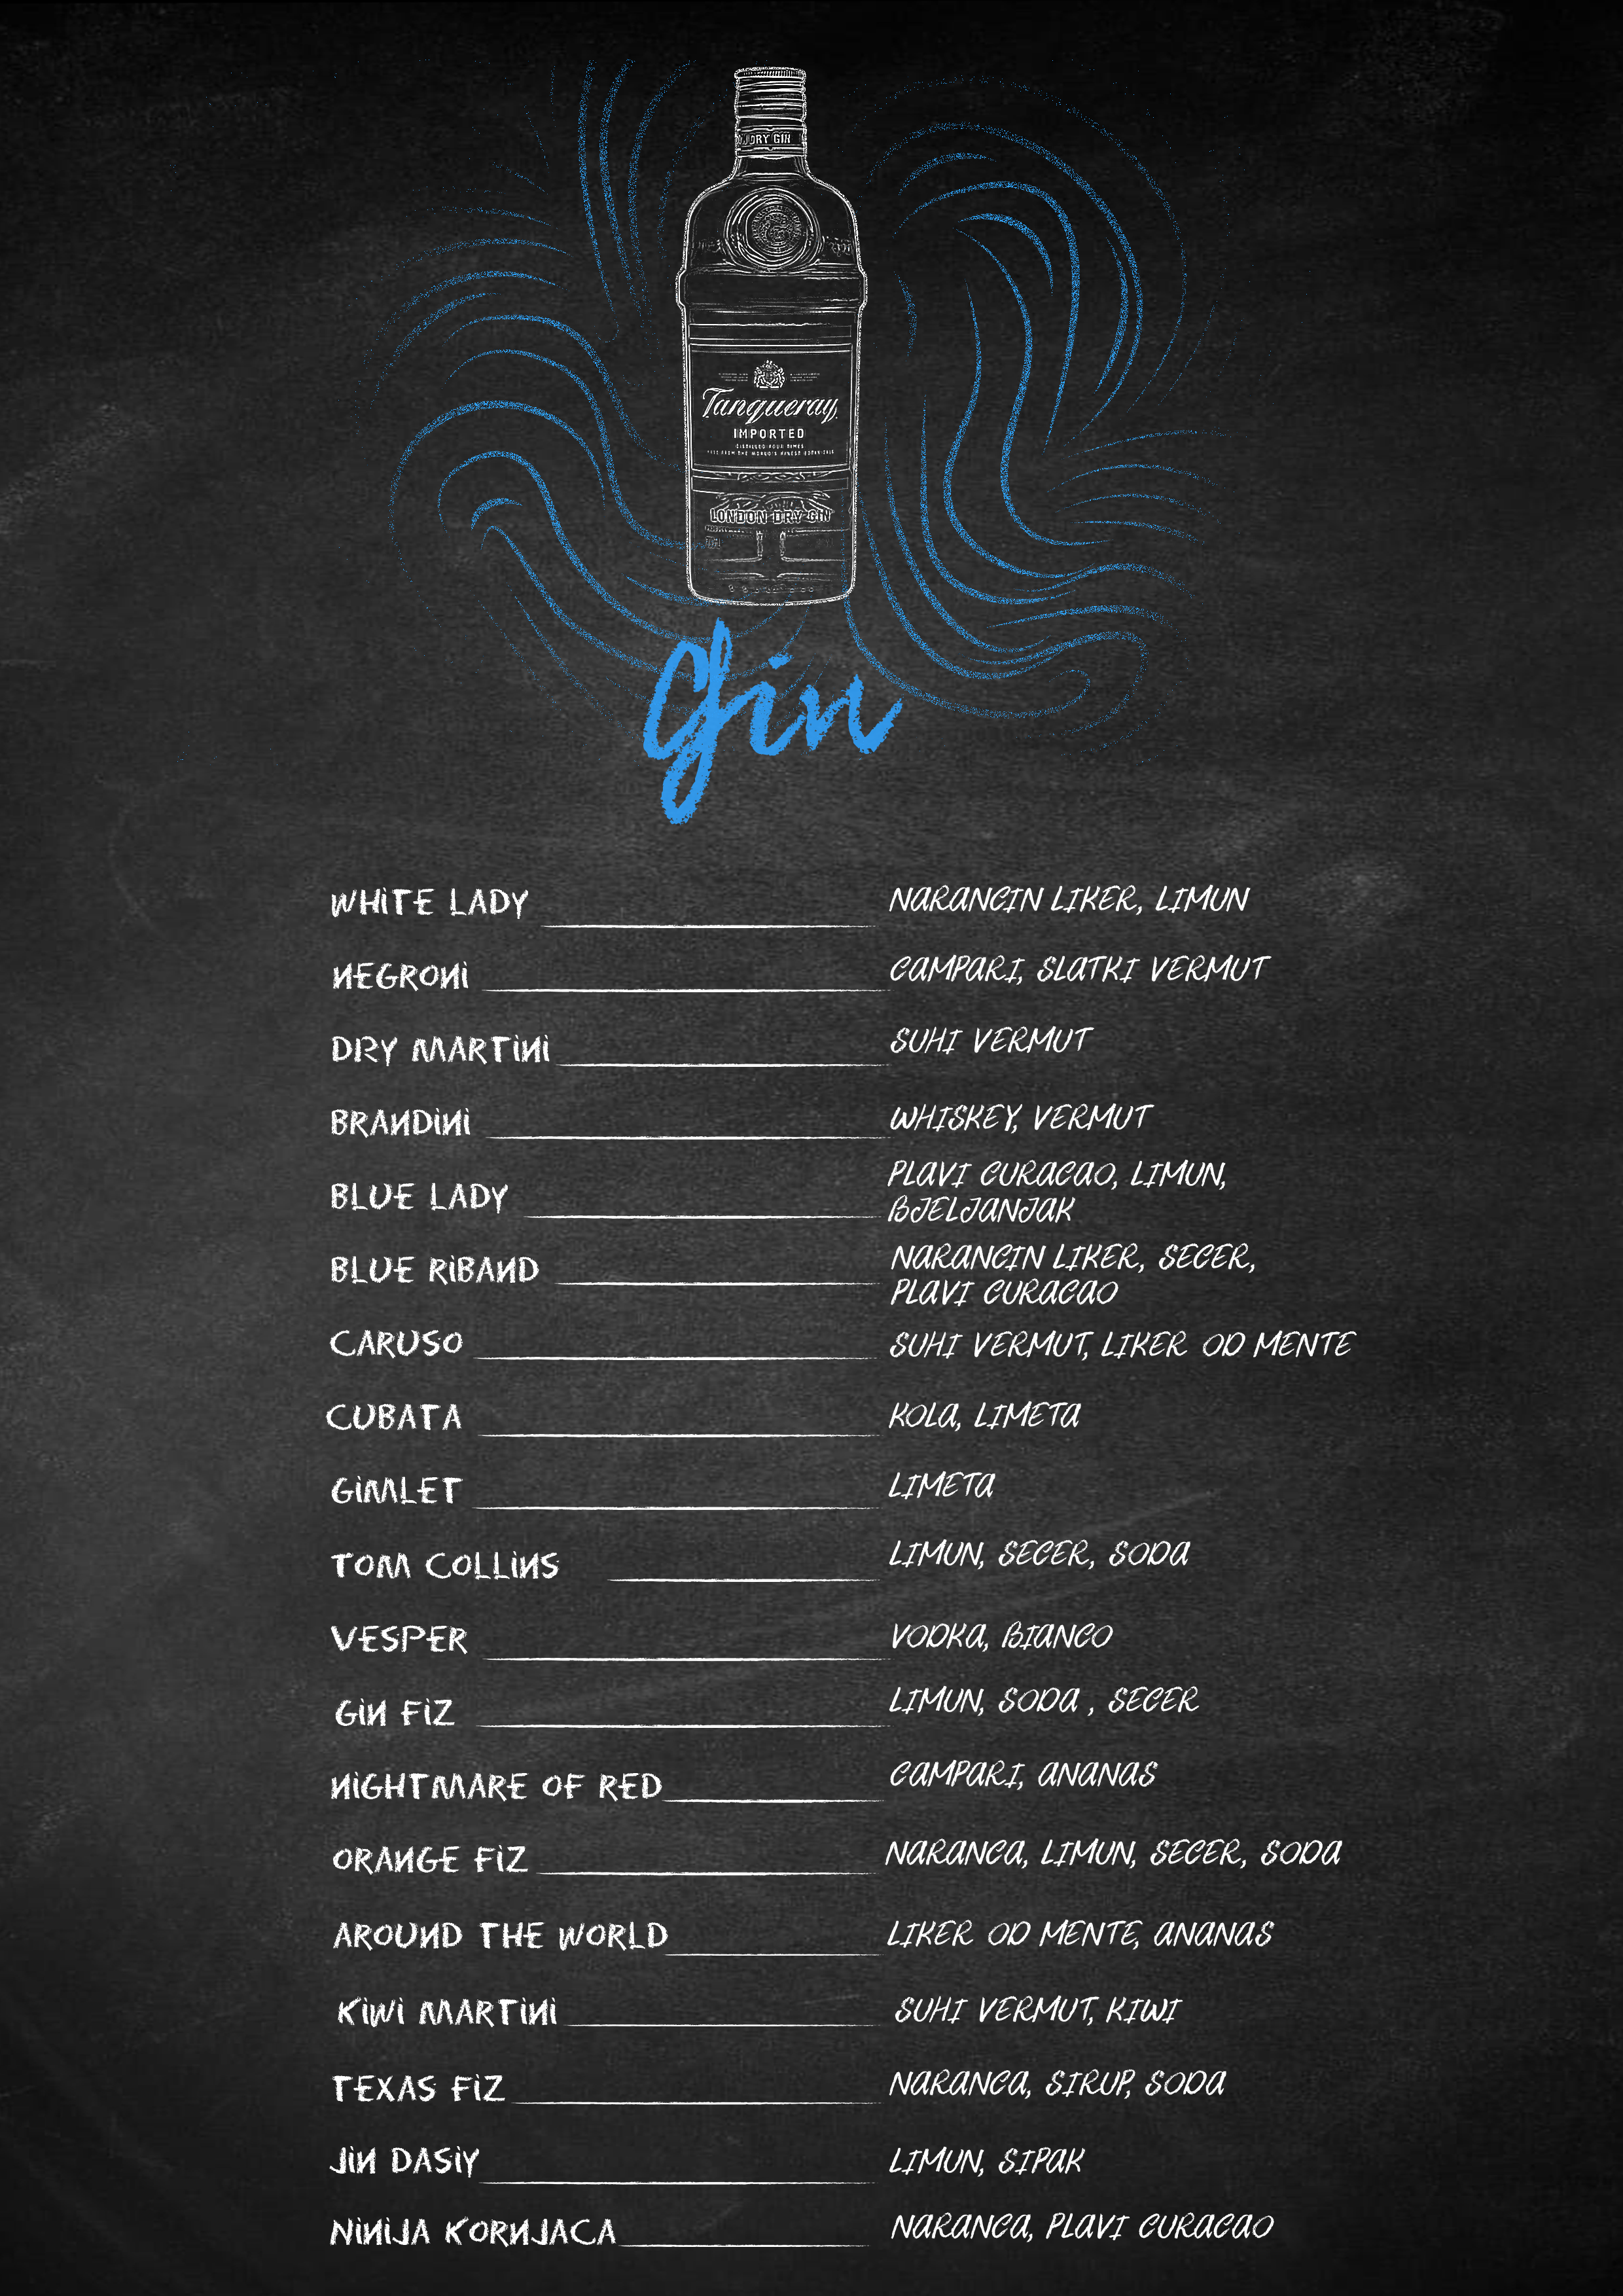 DRY GIN
Tanqueray
IMPORTED
DISTILLED FOUR TIMES
LONDON DRY GIN
Gin
WHITE LADY NARANCIN LIKER, LIMUN
NEGRONI CAMPARI, SLATKI VERMUT
DRY MARTINI SUHI VERMUT
BRANDINI WHISKEY, VERMUT
BLUE LADY PLAVI CURACAO, LIMUN,
BJELJANJAK
BLUE RIBAND NARANCIN LIKER, SECER,
PLAVI CURACAO
CARUSO SUHI VERMUT, LIKER OD MENTE
CUBATA KOLA, LIMETA
GIMLET LIMETA
TOM COLLINS LIMUN, SECER, SODA
VESPER VODKA, BIANCO
GIN FIZ LIMUN, SODA , SECER
NIGHTMARE OF RED CAMPARI, ANANAS
ORANGE FIZ NARANCA, LIMUN, SECER, SODA
AROUND THE WORLD LIKER OD MENTE, ANANAS
KIWI MARTINI SUHI VERMUT, KIWI
TEXAS FIZ NARANCA, SIRUP, SODA
JIN DASIY LIMUN, SIPAK
NINIJA KORNJACA NARANCA, PLAVI CURACAO